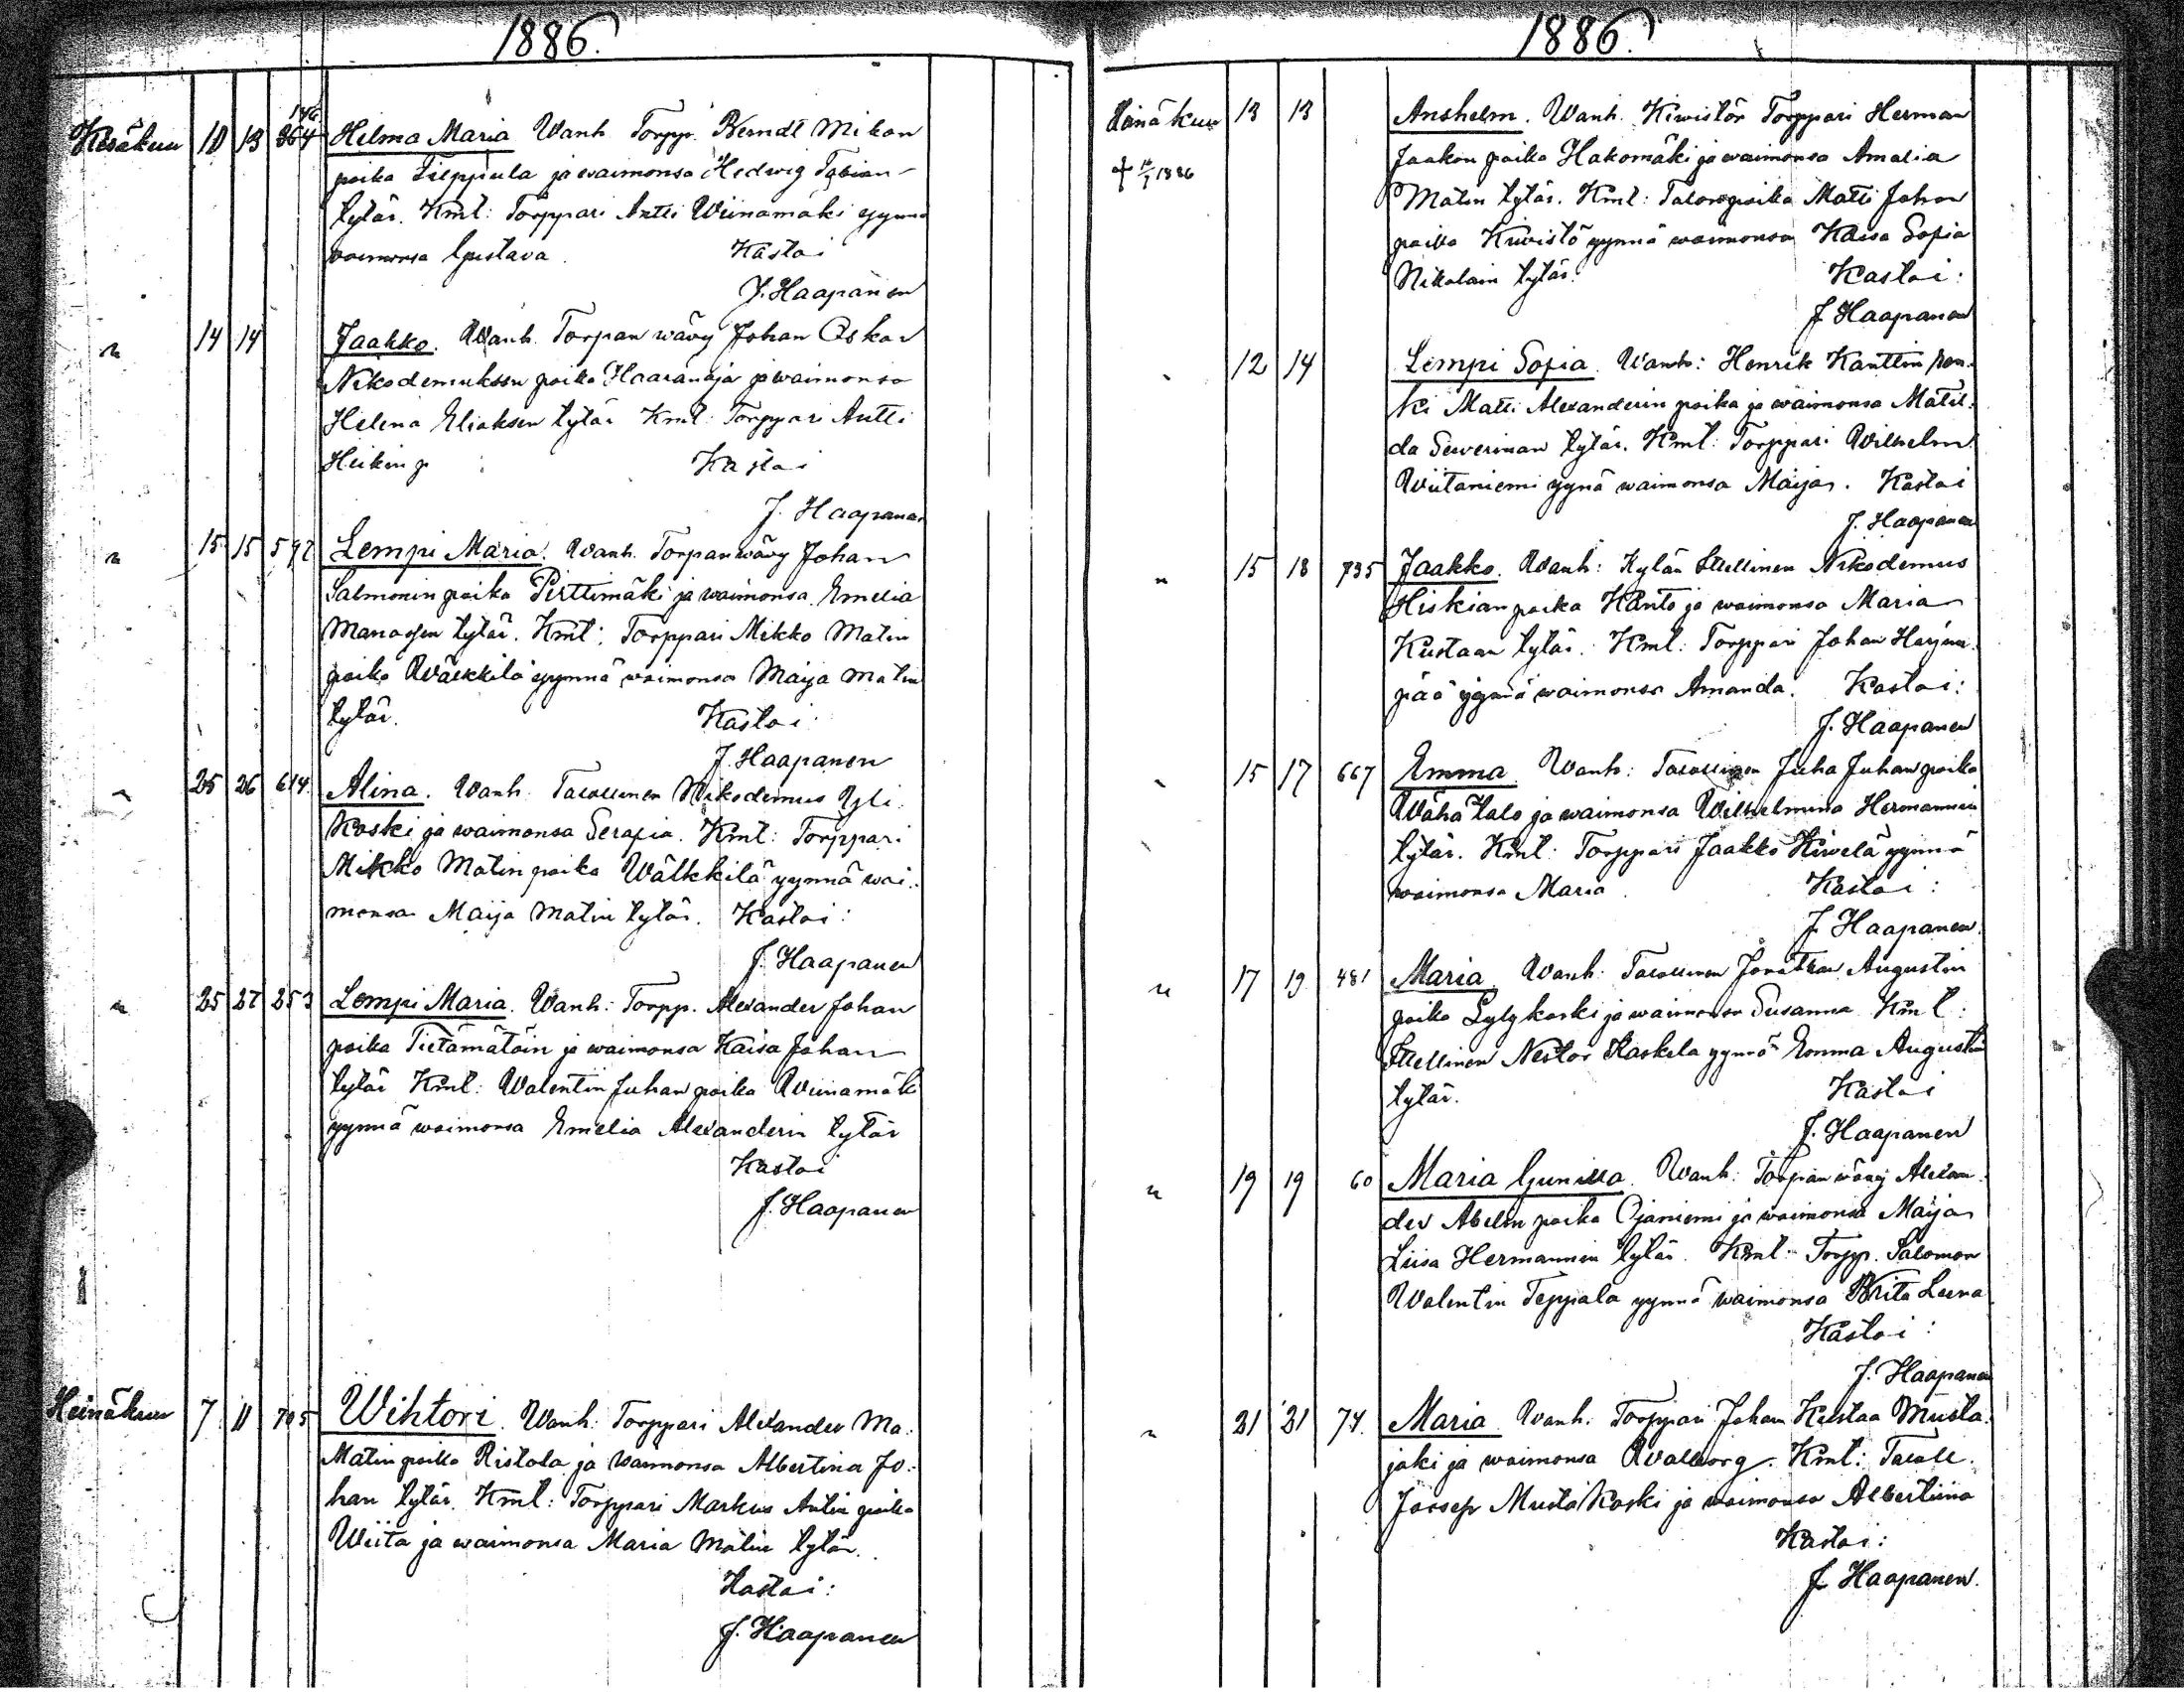 1886.
Kesäkuu 10 13 146 364 Helma Maria Wanh Torpp. Berndt Mikon
poika Lieppula ja waimonsa Hedwig Fabian
tytär. Kml: Torppari Antti Wiinamäki yynnä
waimonsa Gustava. Kastoi
J. Haapanen
" 14 14 Jaakko. Wanh. Torpan wävy Johan Oskar
Nikodemuksen poika Haaranoja ja waimonsa
Helena Eliaksen tytär Kml: Torppari Antti
Heikin p. Kastoi
J. Haapanen
" 15 15 592 Lempi Maria. Wanh. Torpan wävy Johan
Salmonin poika Pirttimäki ja waimonsa Emelia
Manassen tytär. Kml: Torppari Mikko Matin
poika Wälkkilä yynnä waimonsa Maija Matin
tytär. Kastoi:
J. Haapanen
" 25 26 614 Alina. Wanh. Talollinen Nikodemus Yli
koski ja waimonsa Serafia. Kml: Torppari
Mikko Matin poika Wälkkilä yynnä wai-
monsa Maija Matin tytär. Kastoi:
J. Haapanen
" 25 27 253 Lempi Maria. Wanh: Torpp. Alexander Johan
poika Tietämätöin ja waimonsa Kaisa Johan
tytär Kml: Walentin Juhan poika Wiinamäki
yynnä waimonsa Emelia Alexanderin tytär
Kastoi
J. Haapanen
Heinäkuu 7 11 705 Wihtori. Wanh: Torppari Alexander Ma-
Matin poika Ristola ja waimonsa Albertina Jo-
han tytär. Kml: Torppari Markus Antin poika
Wiita ja waimonsa Maria Matin tytär.
Kastoi:
J. Haapanen
1886.
Heinäkuu 13 13 Anshelm. Wanh. Kiwistön Torppari Herman
Jaakon poika Hakomäki ja waimonsa Amalia
1886
Matin tytär. Kml: Talon poika Matti Johan
poika Kiwistö yynnä waimonsa Kaisa Sofia
Nikolain tytär. Kastoi:
J Haapanen
" 12 14 Lempi Sofia. Wanh: Henrik Kanttin ren-
ki Matti Alexanderin poika ja waimonsa Matil-
da Sewerinan tytär. Kml: Torppari Wilhelm
Wiitaniemi yynä waimonsa Maija. Kastoi
J. Haapanen
" 15 18 735 Jaakko. Wanh: Kylän Itellinen Nikodemus
Hiskian poika Kanto ja waimonsa Maria
Kustaan tytär. Kml: Torppari Johan Harjun-
pää yynnä waimonsa Amanda. Kastoi:
J. Haapanen
" 15 17 667 Emma. Wanh: Talollinen Juha Juhan poika
Wähä talo ja waimonsa Wilhelmina Hermannin
tytär. Kml: Torppari Jaakko Kiwelä yynnä
waimonsa Maria. Kastoi:
J. Haapanen.
" 17 19 481 Maria. Wanh: Talollinen Jonathan Augustin
poika Lylykoski ja waimonsa Susanna Kml:
Itellinen Nestor Kaskela yynnä Emma Augustin
tytär. Kastoi
J. Haapanen
" 19 19 60 Maria Gunilla. Wanh: Torpan wävy Alexan-
der Abelin poika Ojaniemi ja waimonsa Maija
Liisa Hermannin tytär. Kml: Torpp. Salomon
Walentin Teppala yynnä waimonsa Brita Leena
Kastoi:
J. Haapanen
" 21 21 74. Maria. Wanh. Torppari Johan Kustaa Musta-
joki ja waimonsa Walborg. Kml: Taloll.
Joosep Mustakoski ja waimonsa Albertiina
Kastoi:
J. Haapanen.